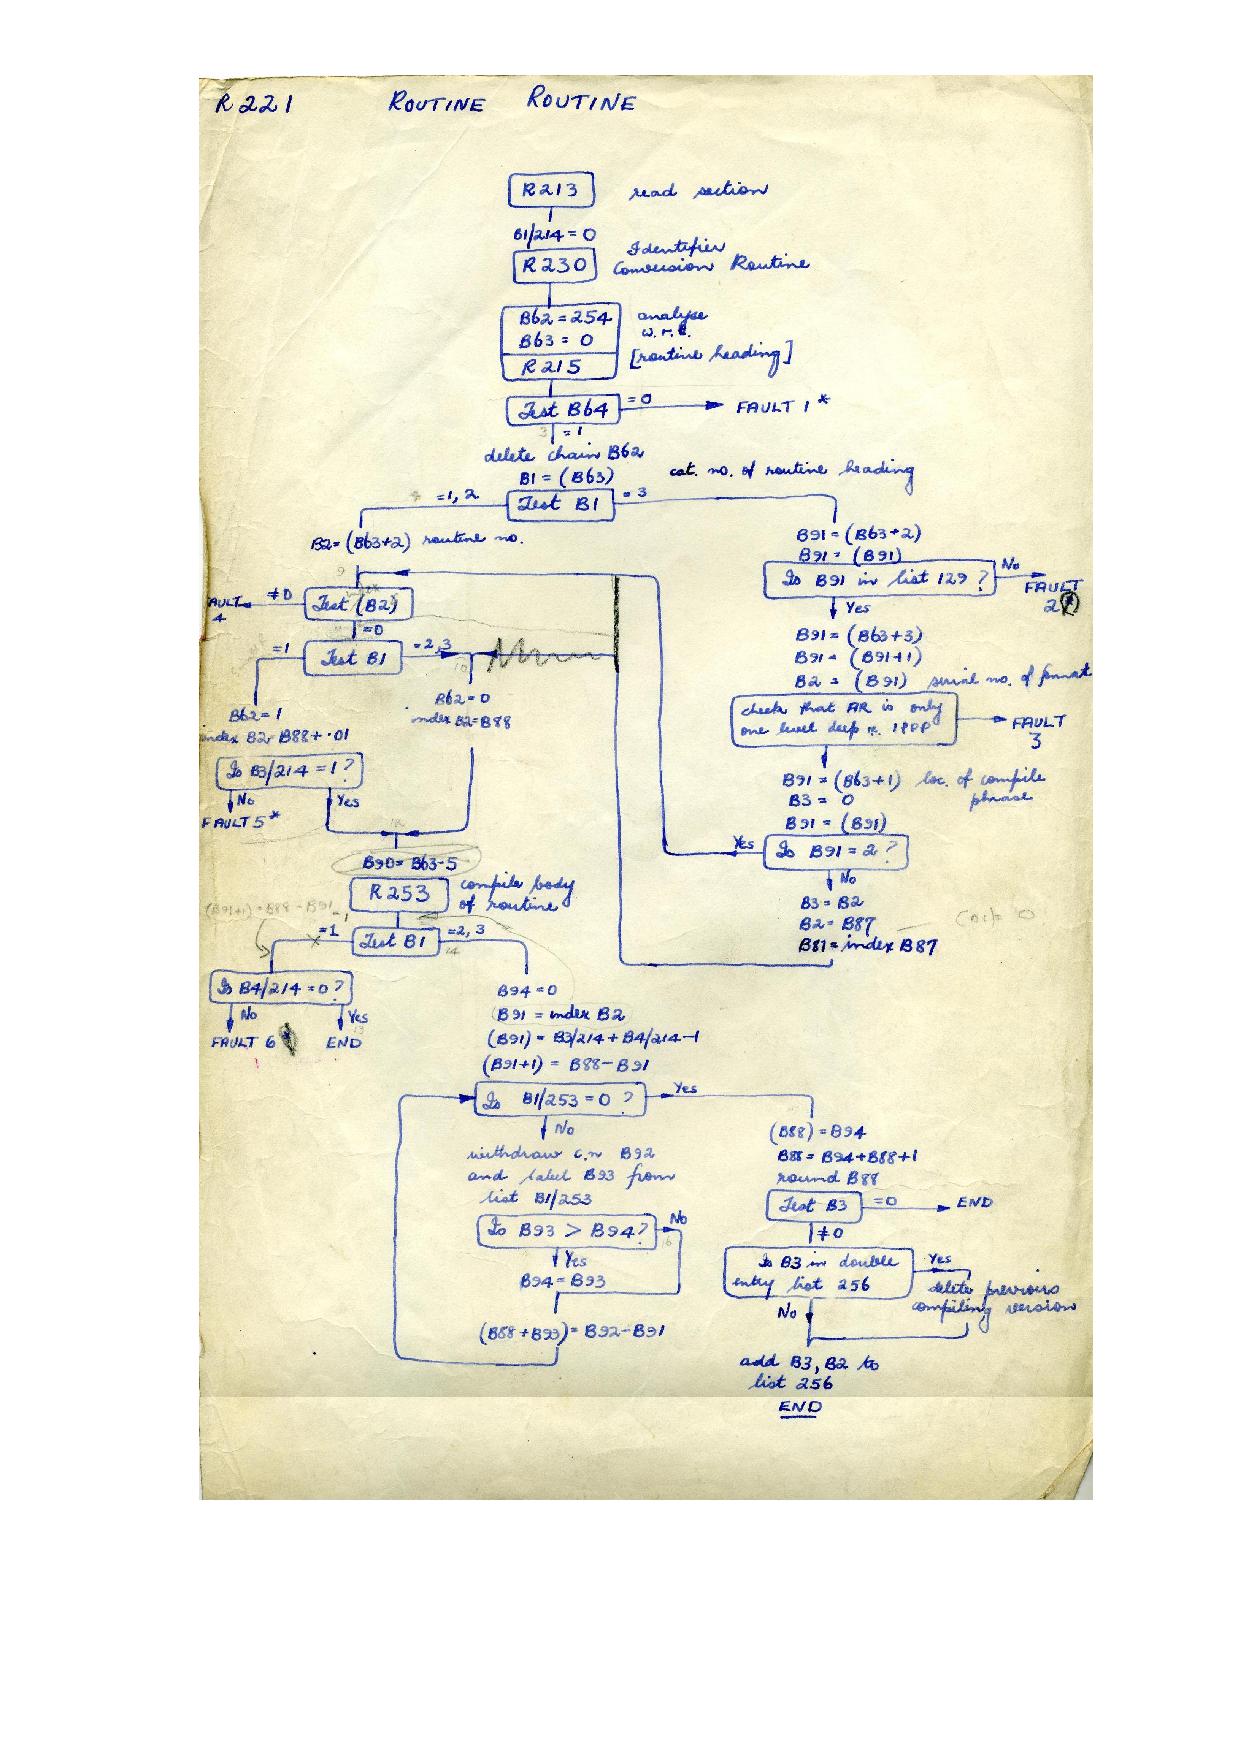 R221 ROUTINE ROUTINE
R213 read section
B1/214 = 0
R230 Identifier
Conversion Routine
B62 = 254 analyse
B63 = 0 w.r.t.
R215 [routine heading]
Test B64 = 0 FAULT 1*
3 = 1
delete chain B62
B1 = (B63) cat. no. of routine heading
Test B1
= 1, 2
= 3
B2 = (B63+2) routine no.
9
AULT 4
≠0
Test (B2)
=0
=1
Test B1
=2, 3
10
B62 = 1
index B2 = B88 + .01
Is B3/214 = 1 ?
No
Yes
FAULT 5*
B62 = 0
index B2 = B88
B91 = (B63+2)
B91 = (B91)
Is B91 in list 129 ?
No
FAULT
2
Yes
B91 = (B63+3)
B91 = (B91+1)
B2 = (B91) serial no. of format
check that AR is only
one level deep
FAULT
3
B91 = (B63+1) loc. of compile
phrase
B3 = 0
B91 = (B91)
Is B91 = 2 ?
Yes
No
B3 = B2
B2 = B87
B81 = index B87
B90 = B63-5
R253 compile body
of routine
(B91+1) = B88 - B91
Test B1
=1
=2, 3
14
Is B4/214 = 0 ?
No
Yes
13
FAULT 6
END
B94 = 0
B91 = index B2
(B91) = B3/214 + B4/214 - 1
(B91+1) = B88 - B91
Is B1/253 = 0 ?
Yes
No
withdraw c.n B92
and label B93 from
list B1/253
Is B93 > B94 ?
No
16
Yes
B94 = B93
(B88 + B93) = B92 - B91
(B88) = B94
B88 = B94 + B88 + 1
round B88
Test B3
=0
END
≠0
Is B3 in double
entry list 256
Yes
delete previous
compiling version
No
add B3, B2 to
list 256
END